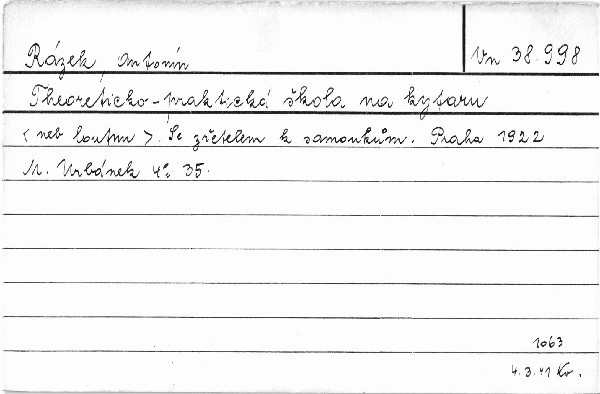 Rázek, Antonín
Vn 38.998
Theoreticko-praktická škola na kytaru
< neb loutnu >. Se zřetelem k samoukům. Praha 1922
M. Urbánek 4° 35.
1063
4.3.41 Kv.